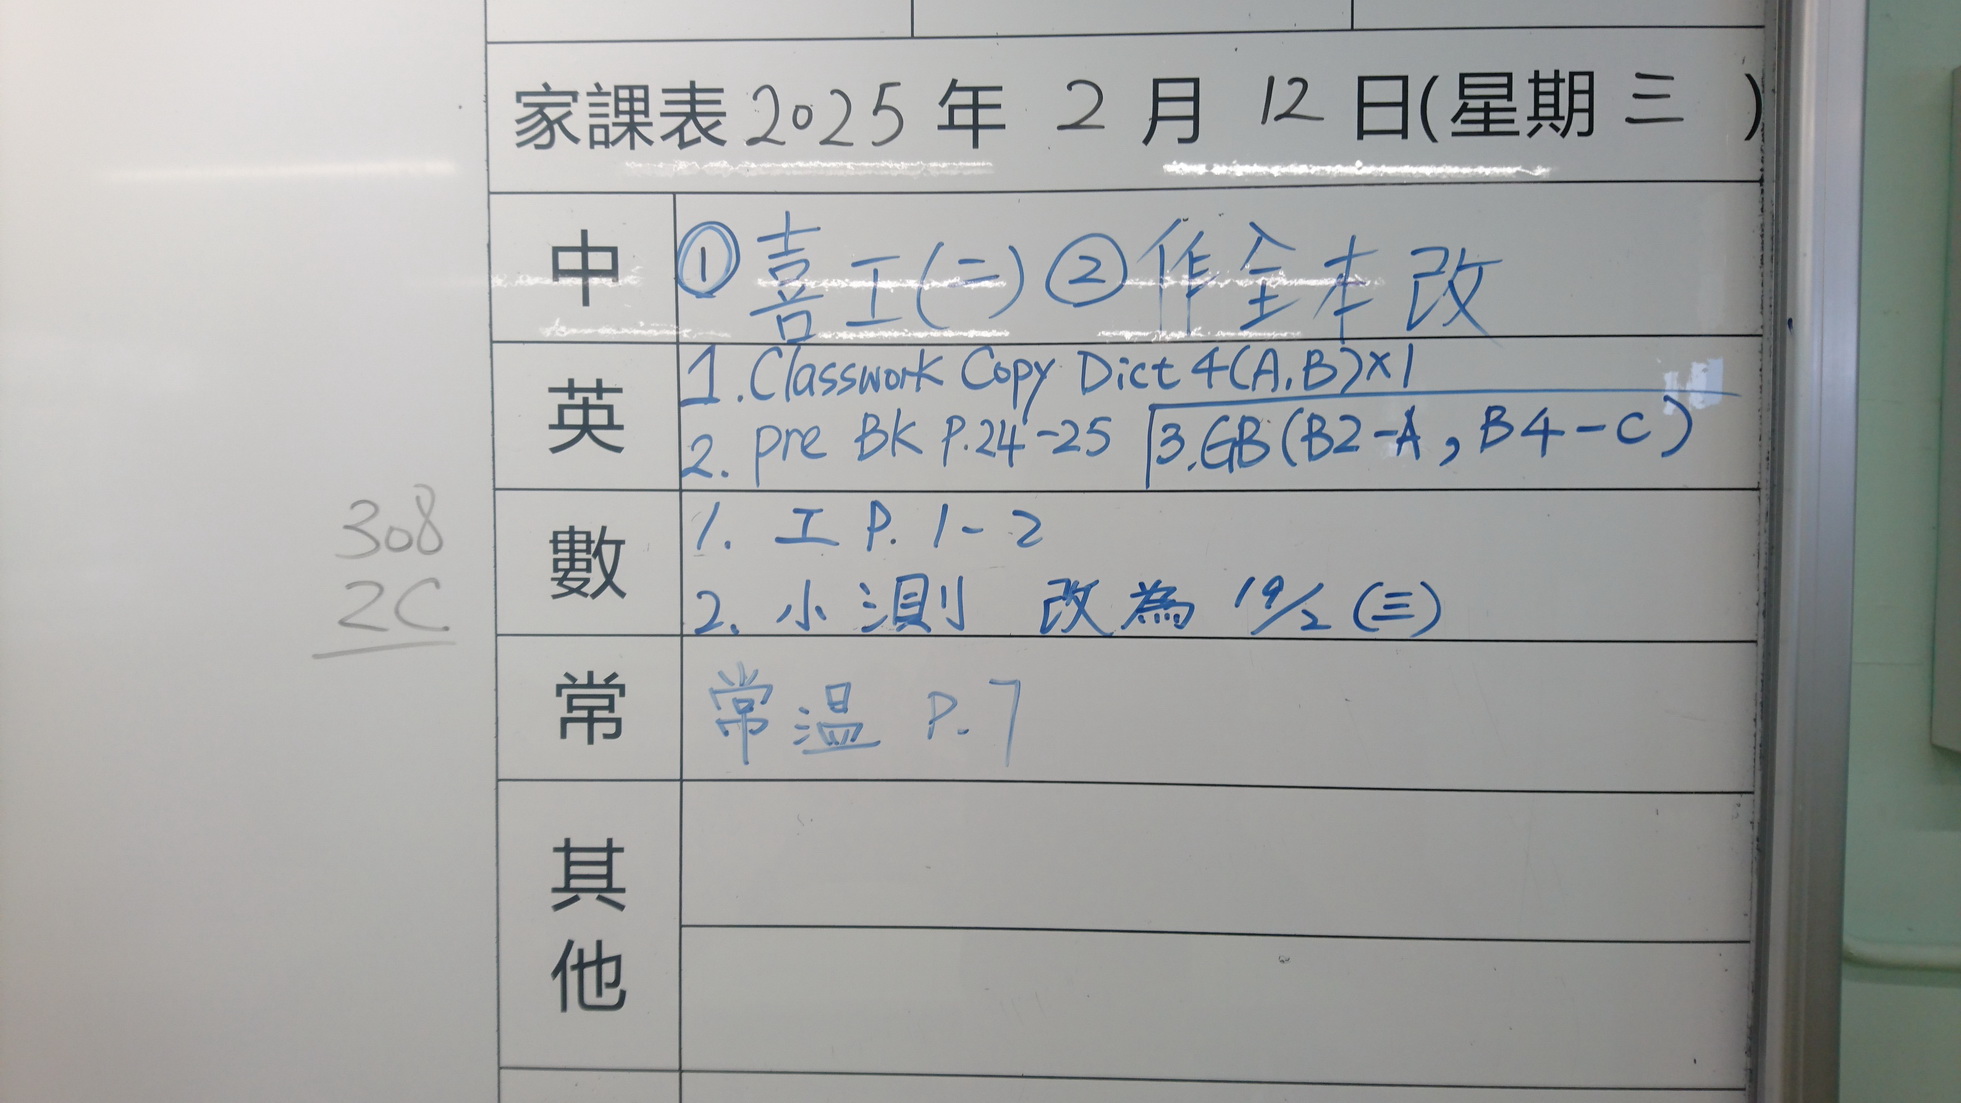 家課表 2025 年 2 月 12 日(星期 三 )
中
① 喜工(二) ② 作全本改
英
1. Classwork Copy Dict 4(A,B)×1
2. pre BK P.24-25 3. GB(B2-A, B4-C)
308
2C
數
1. 工 P. 1-2
2. 小測 改為 19/2 (三)
常
常温 P.7
其他